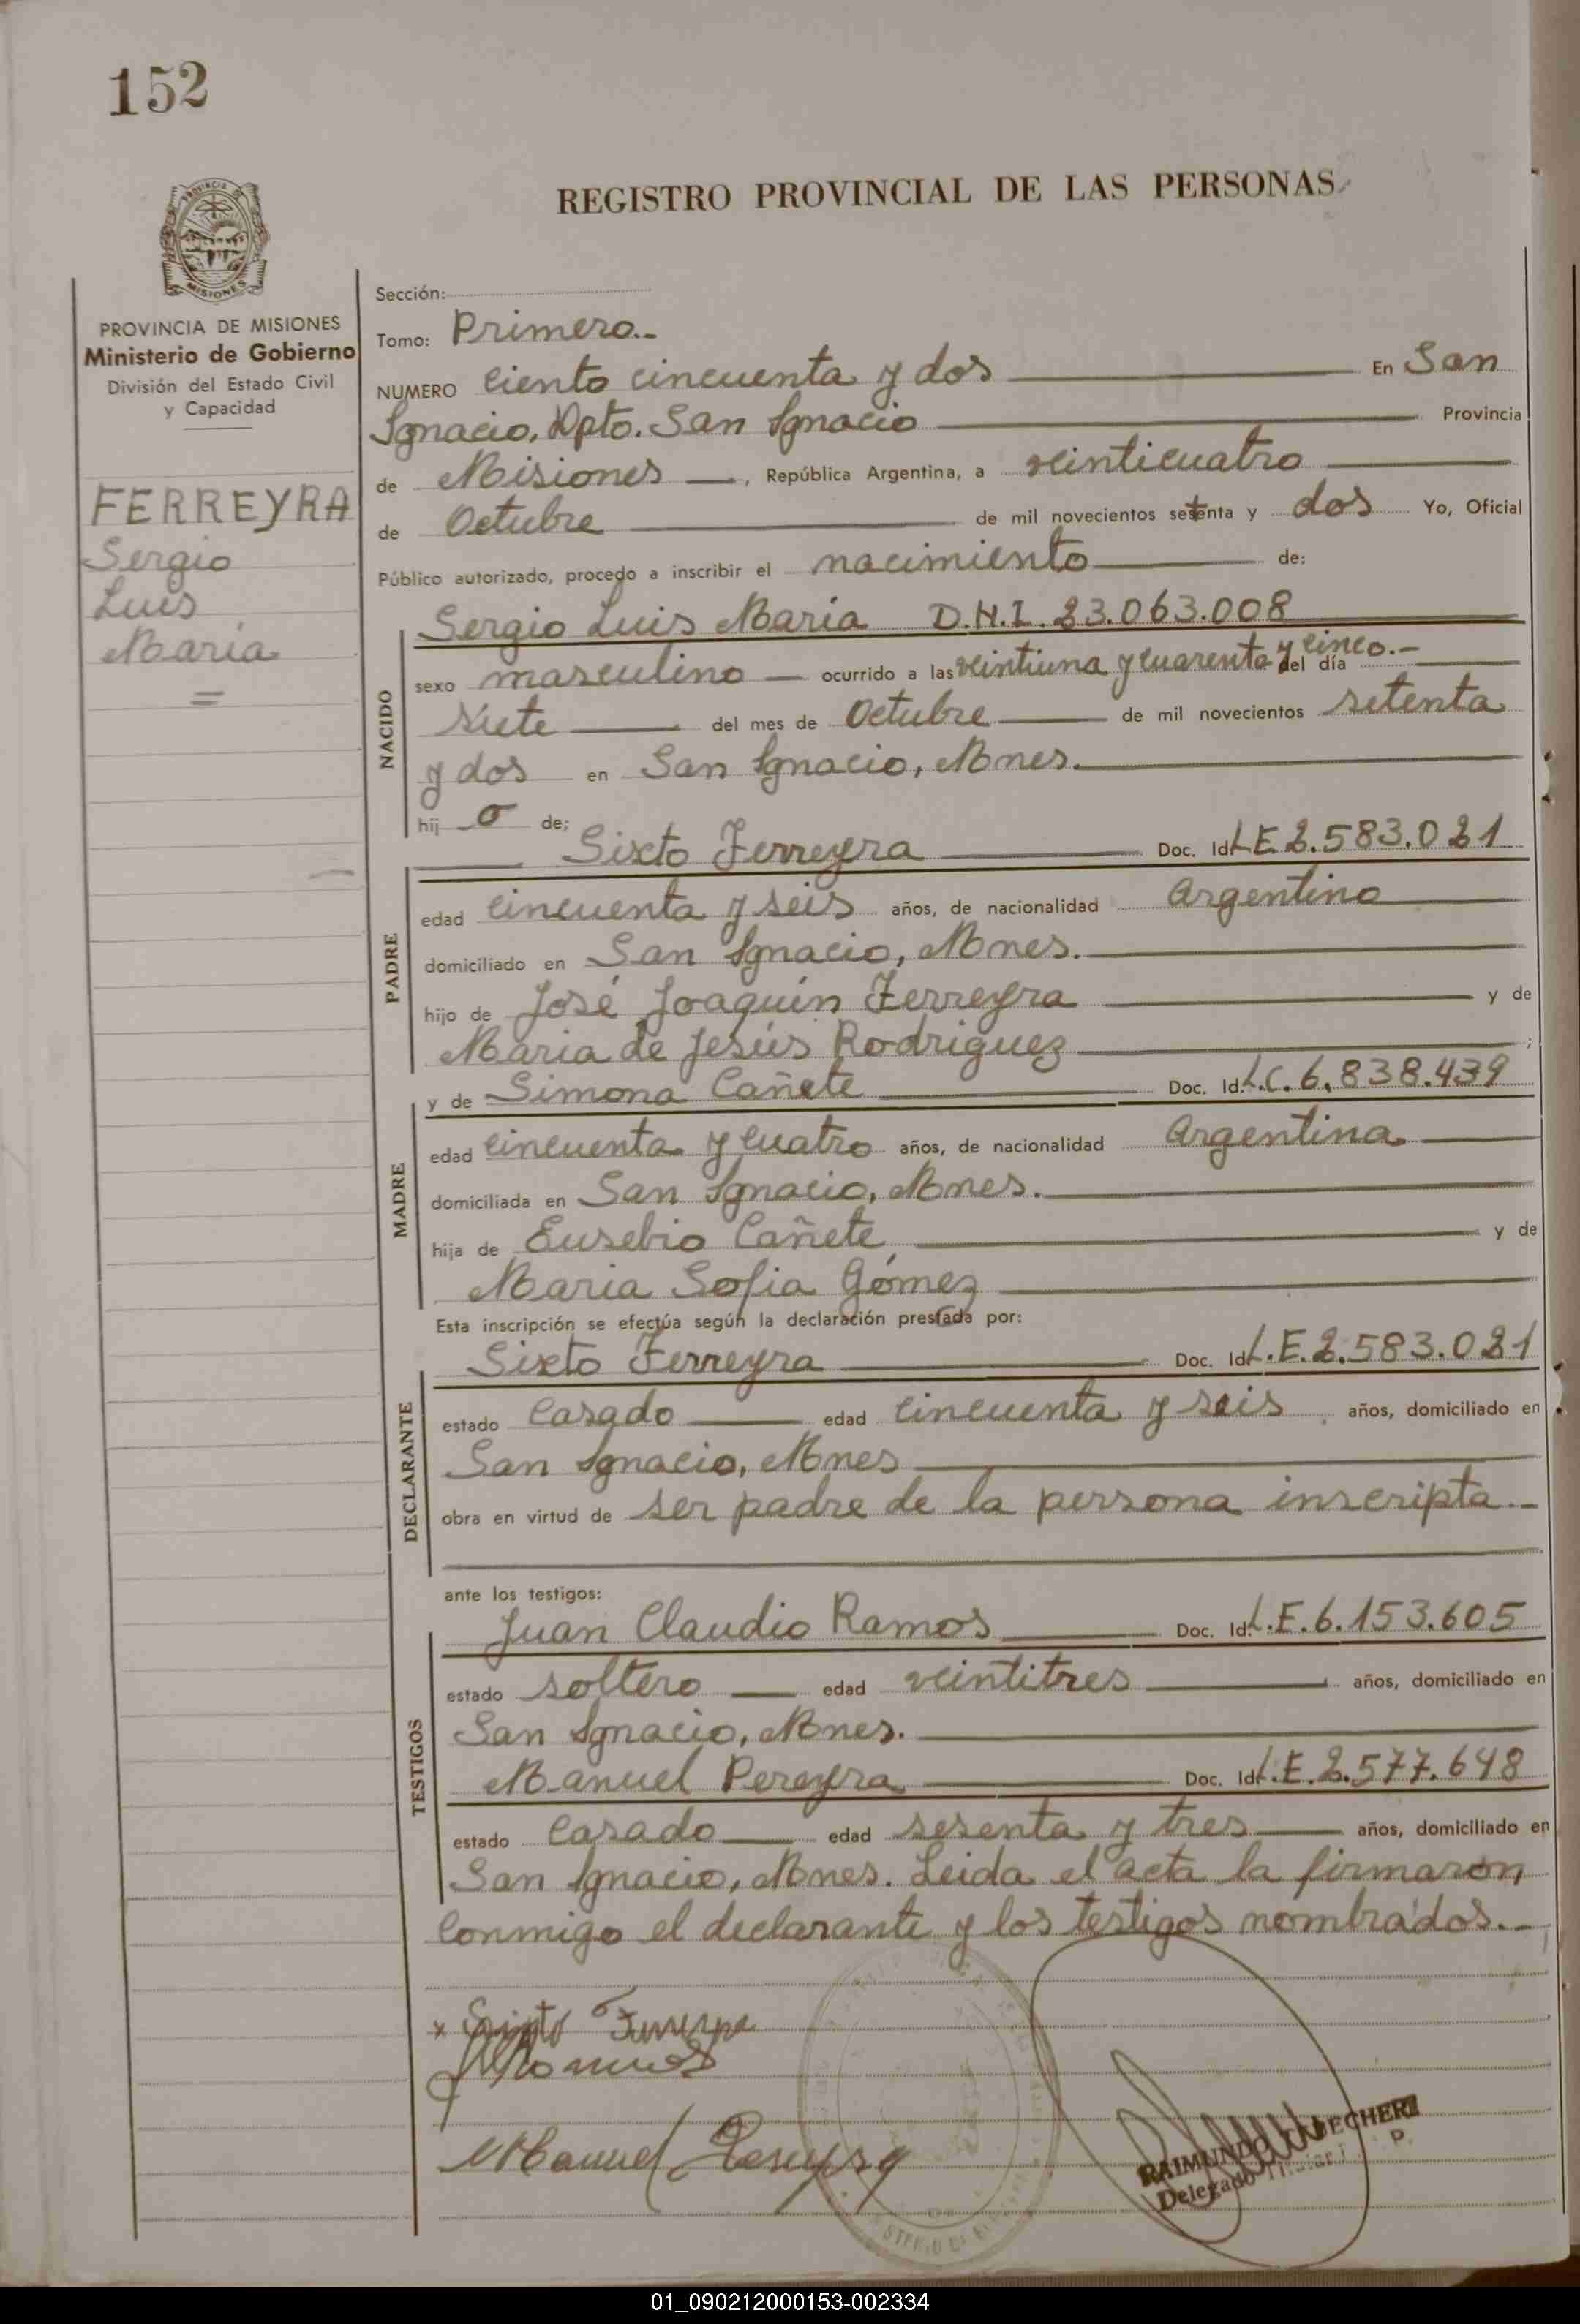 152
REGISTRO PROVINCIAL DE LAS PERSONAS
PROVINCIA
MISIONES
PROVINCIA DE MISIONES
Ministerio de Gobierno
División del Estado Civil
y Capacidad
FERREYRA
Sergio
Luis
María
=
Sección:
Tomo: Primero.-
NUMERO Ciento cincuenta y dos En San
Ignacio, Dpto. San Ignacio Provincia
de Misiones, República Argentina, a veinticuatro
de Octubre de mil novecientos setenta y dos Yo, Oficial
Público autorizado, procedo a inscribir el nacimiento de:
Sergio Luis María D.N.I. 23.063.008
NACIDO
sexo masculino ocurrido a las veintiuna y cuarenta y cinco.- del día
siete del mes de Octubre de mil novecientos setenta
y dos en San Ignacio, Mnes.
hij o de:
Sixto Ferreyra Doc. Id. L.E. 2.583.021
PADRE
edad cincuenta y seis años, de nacionalidad Argentina
domiciliado en San Ignacio, Mnes.
hijo de José Joaquín Ferreyra y de
Maria de Jesús Rodriguez ;
y de Simona Cañete Doc. Id. L.C. 6.838.439
MADRE
edad cincuenta y cuatro años, de nacionalidad Argentina
domiciliada en San Ignacio, Mnes.
hija de Eusebio Cañete y de
Maria Sofia Gómez
Esta inscripción se efectúa según la declaración prestada por:
Sixto Ferreyra Doc. Id. L.E. 2.583.021
DECLARANTE
estado Casado edad cincuenta y seis años, domiciliado en
San Ignacio, Mnes
obra en virtud de ser padre de la persona inscripta.-
ante los testigos:
Juan Claudio Ramos Doc. Id. L.E. 6.153.605
TESTIGOS
estado soltero edad veintitres años, domiciliado en
San Ignacio, Mnes.
Manuel Pereyra Doc. Id. L.E. 2.577.648
estado Casado edad sesenta y tres años, domiciliado en
San Ignacio, Mnes. Leida el acta la firmaron,
Conmigo el declarante y los testigos nombrados.-
x Sixto Ferreyra
Manuel Pereyra
RAIMUNDO
Delegado
01_090212000153-002334